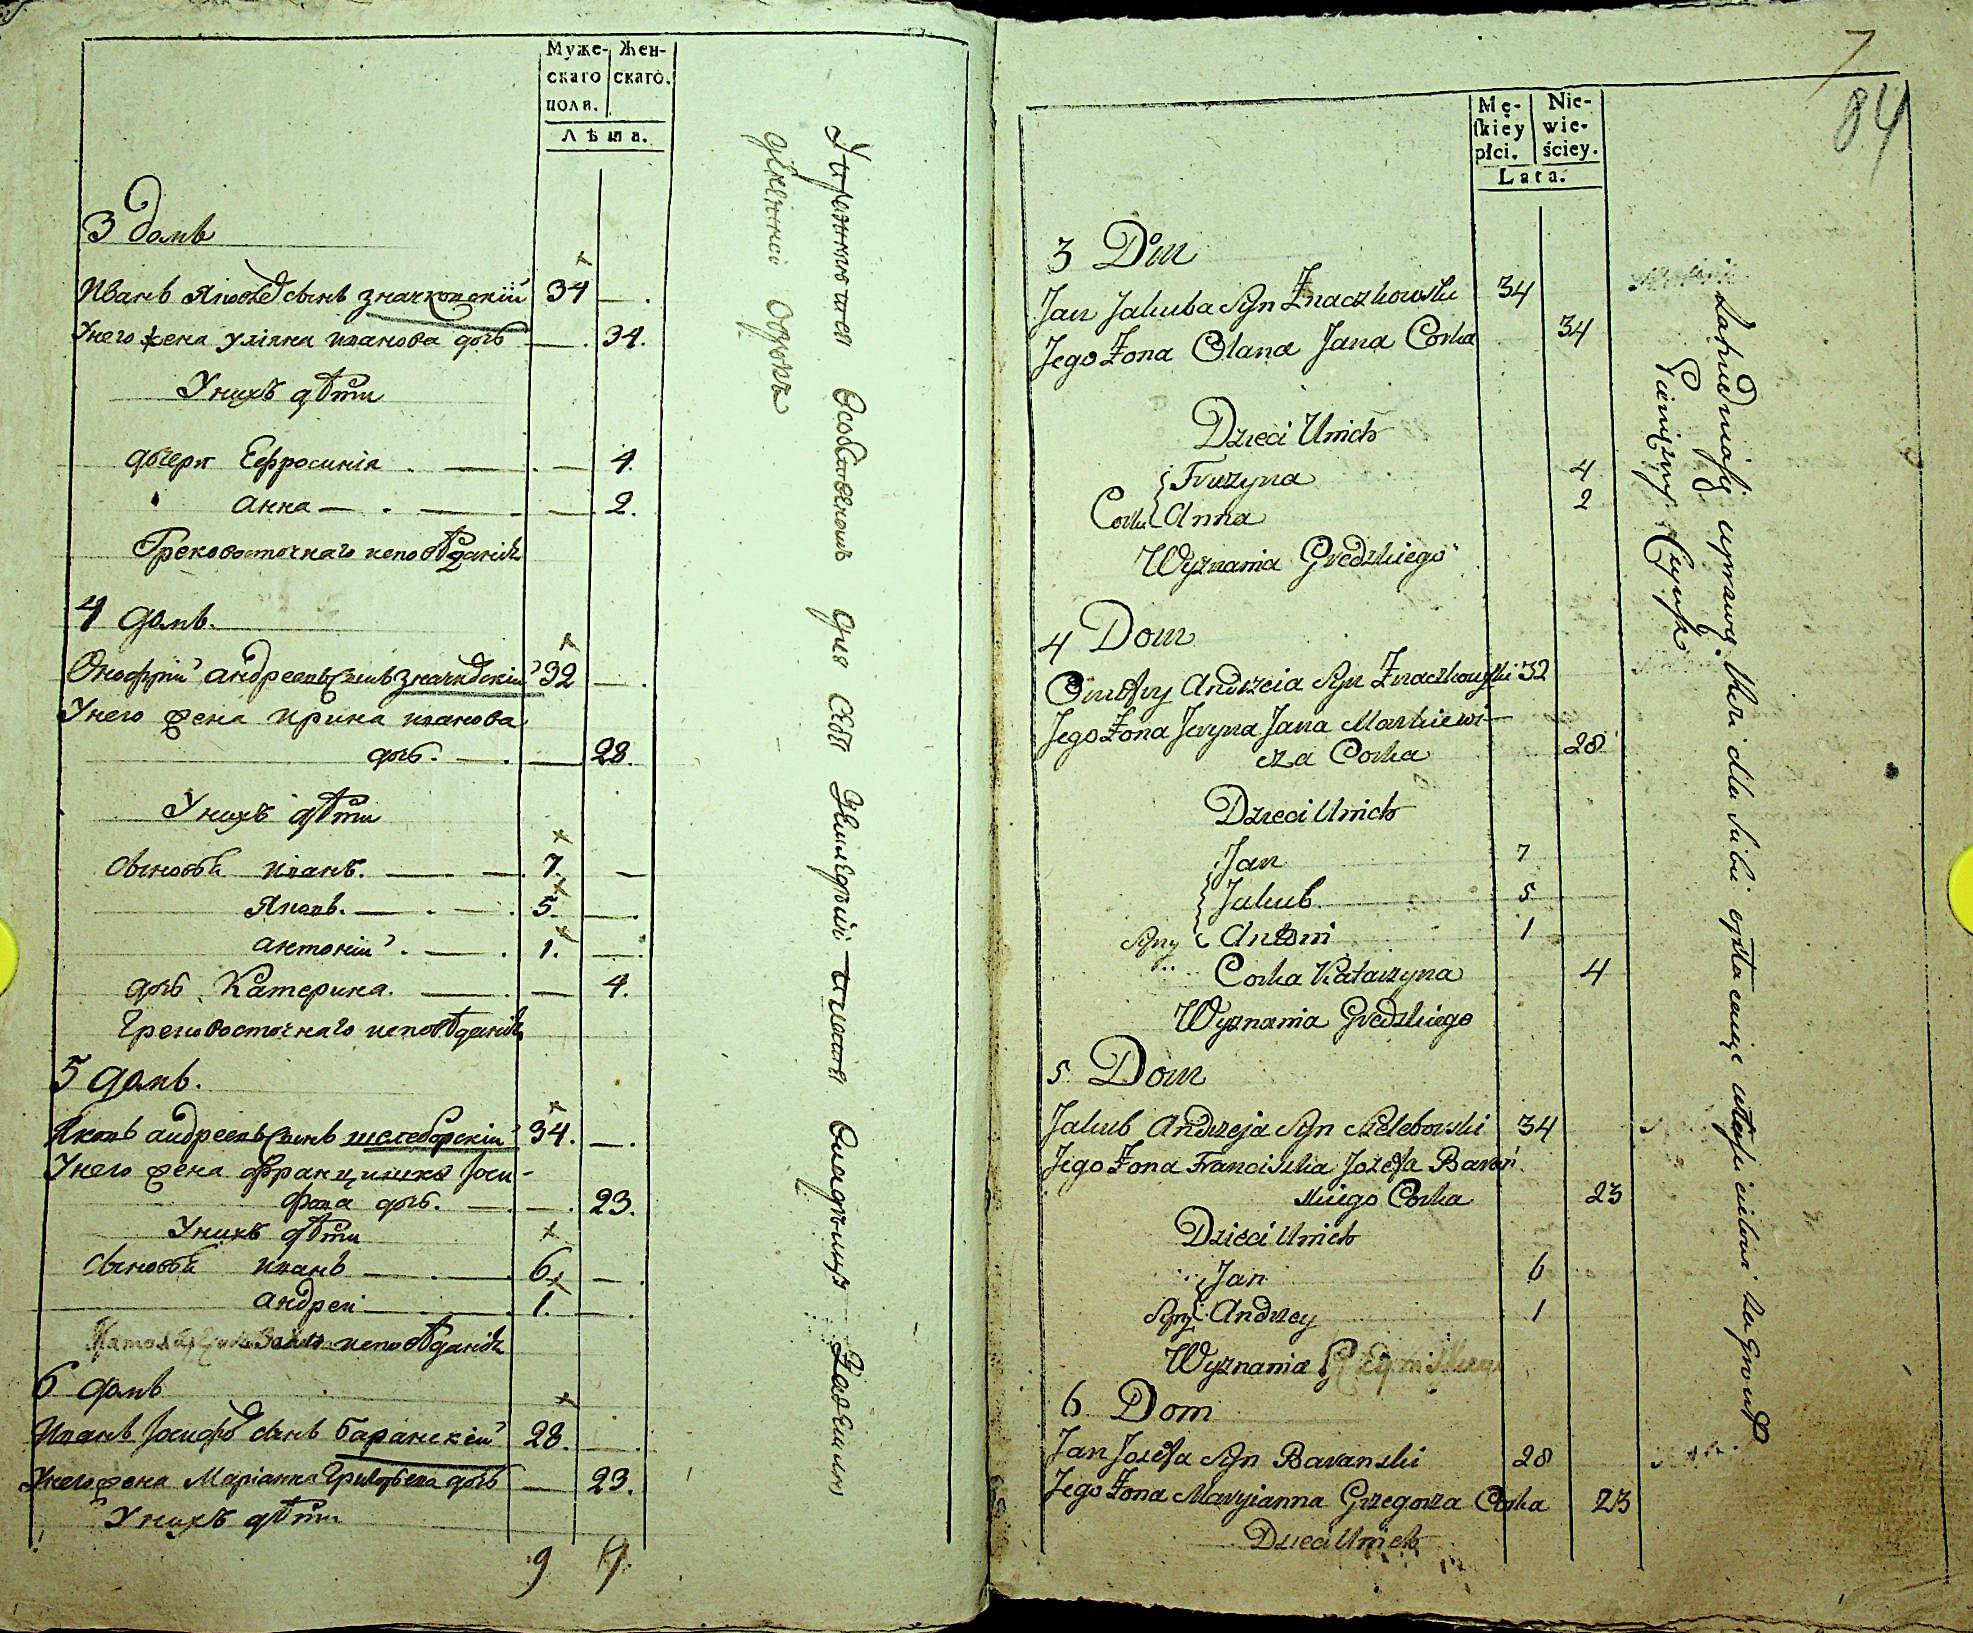 Муже- Жен-
скаго скаго.
пола.
Лѣта.
3 домъ
Иванъ Яковлев сынъ Значковскій 34 — .
У него жена Уліяна иванова дочь — . 34.
У нихъ дѣти
дочери Ефросинія . — . — 4.
Анна — . — . — 2.
Грековосточнаго исповѣданія
4 домъ.
Онофрій андреевъ сынъ Значковскій 32 — .
У него жена ирина иванова
дочь. — . — 28.
У нихъ дѣти
сыновья иванъ. — . — . 7. —
Яковъ. — . — . 5. — .
антоній . — . 1. — .
дочь Катерина. — . — 4.
Грековосточнаго исповѣданія
5 домъ.
Яковъ андреевъ сынъ шелеборскій 34. — .
У него жена Францишка Іоси-
фова дочь. — . — . 23.
У нихъ дѣти
сыновья иванъ — . — . 6. — .
андрей — . — . 1. — .
исповѣданія
6 домъ
Иванъ Іосифов сынъ Баранскій 28. — .
У него жена Маріанна Григорьева дочь — 23.
У нихъ дѣти
9 9.
Упражняются особственомъ для себя
7
84
Mę- Nie-
skiey wie-
płci. ściey.
Lata.
3 Dom
Jan Jakuba Syn Znaczkowski 34
Jego Zona Olana Jana Corka 34
Dzieci Unich
Fruzyna 4
Corki Anna 2
Wyznania Gredzkiego
4 Dom
Onufry Andrzeia Syn Znaczkowski 32
Jego Zona Jeryna Jana Markiewi-
cza Corka 28
Dzieci Unich
Jan 7
Jakub. 5
Syny Antoni 1
Corka Katarzyna 4
Wyznania Gredzkiego
5 Dom
Jakub Andrzeja Syn Szeleborski 34
Jego Zona Franciszka Jozefa Barań
skiego Corka 23
Dzieci Unich
Jan 6
Syny Andrzey 1
Wyznania
6 Dom
Jan Jozefa Syn Baranski 28
Jego Zona Maryianna Grzegorza Corka 23
Dzieci Unich
Zatrudniaią się uprawą dla siebie
Pieniężny Czynsz